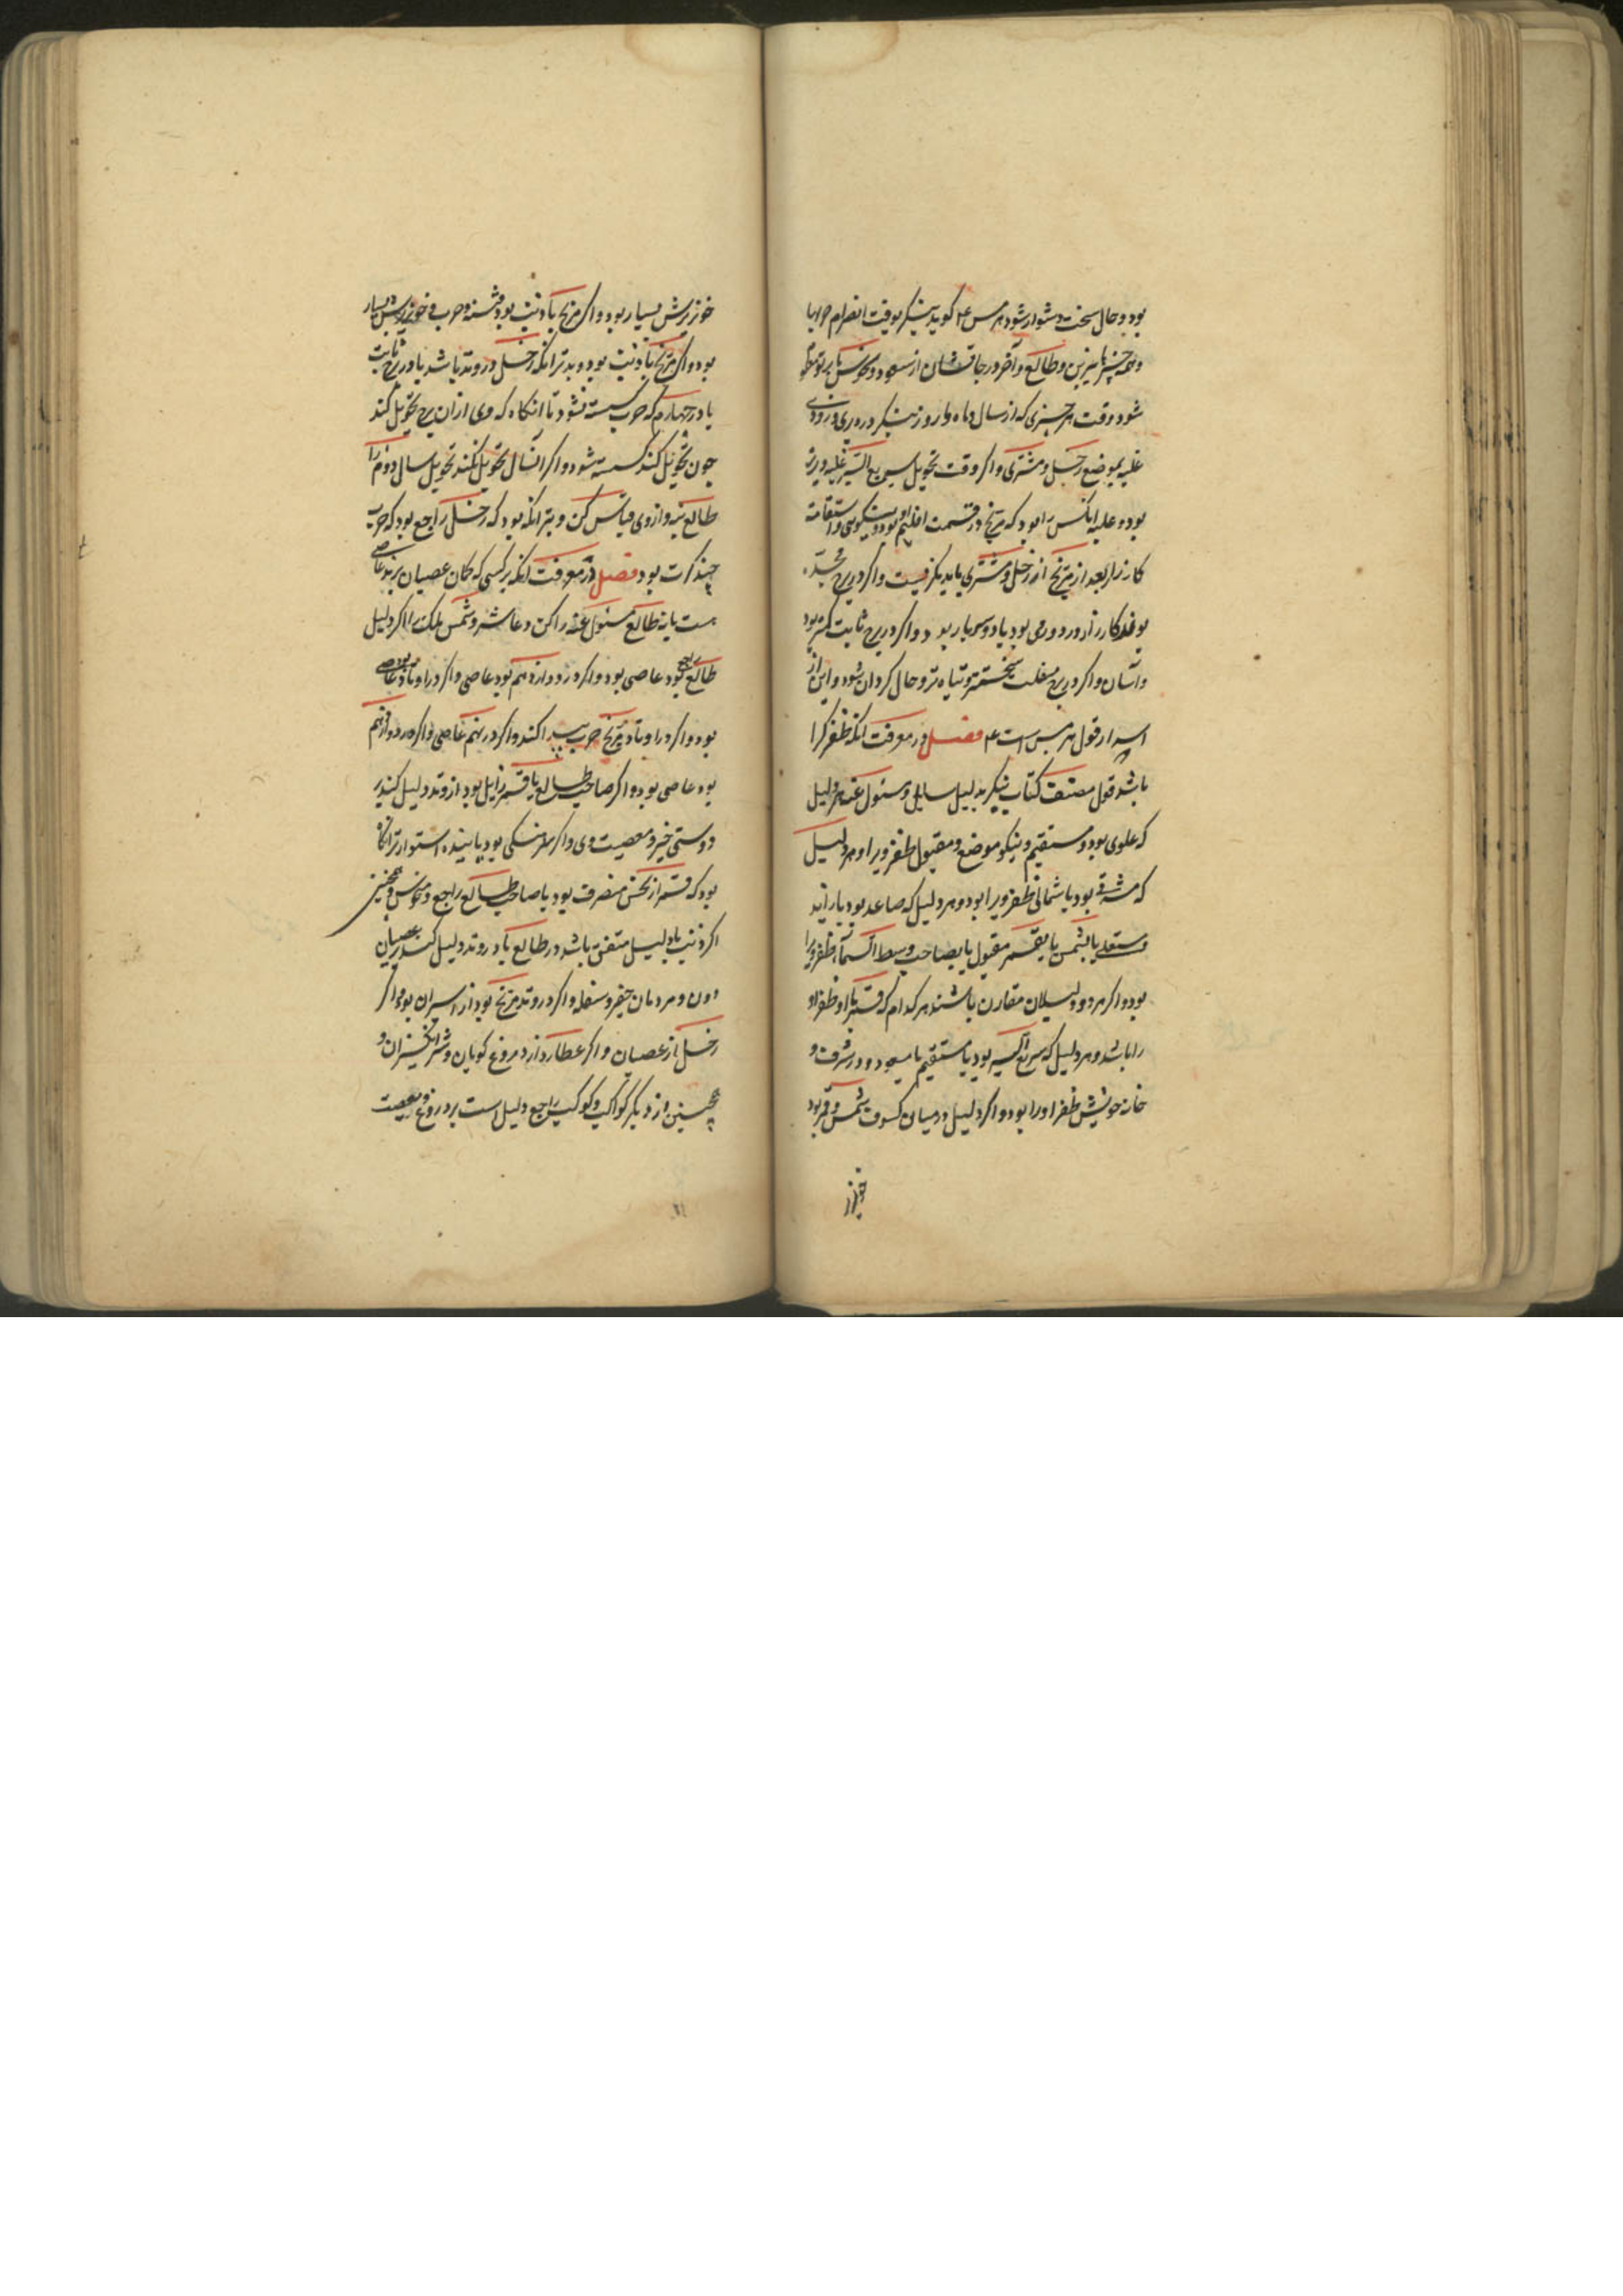 بود و حال سخت و دشوار شود هرمس ع‍م کوید بنیکر بوقت انصرام حربها
و طالع و آخر درجاتشان از سعود و نحوس
شود وقت هر چیزی که از سال و ماه و روز بنیکر در دیری و زودی
غلبه بموضع زحل و مشتری و اکر وقت تحویل سریع السیر غلبه ویرا
بود و غلبه آنکس را بود که مریخ در قسمت اقلیم او بود و نیکویی و استقامت
کارزار بعد از مریخ از زحل و مشتری باید نکرفیست و اکر در برج ذو جسدین
بوند کارزار دو بود یا دو سه بار بود و اکر در برج ثابت کمتر بود
و آسان و اکر در برج منقلب سخت‌تر و تباه‌تر و حال کردان شود و این از
اسرار قول هرمس است ع‍م فصل در معرفت انکه ظفر کرا
باشد قول مصنف کتاب بنیکر بدلیل سایل و مسئول عنه هر دلیل
که علوی بود و مستقیم و نیکو موضع و مقبول ظفر ویرا و هر دلیل
که مشرقی بود یا شمالی ظفر ویرا بود و هر دلیل که صاعد بود یا زاید
و مستعلی یا بشمس یا بقمر مقبول یا بصاحب وسط السماء ظفر ویرا
بود و اکر هر دو دلیلان مقارن باشند هر کدام که قمر با او ظفر او
را باشد و هر دلیل که سریع السیر بود یا مستقیم یا مسعود و در شرف و
خانه خویش ظفر او را بود و اکر دلیل در میان کسوف شمس و قمر بود
خونریز
خونریزش بسیار بود و اکر مریخ با ذنب بود فتنه و حرب و خونریزش بسیار
بود و اکر مریخ با ذنب بود و بدتر انکه زحل در وتد باشد یا در برج ثابت
یا در چهارم که حرب کسسته نشود تا انکاه که وی از ان برج تحویل کند
چون تحویل کند کسسته شود و اکر آنسال تحویل نکند تحویل سال دوم را
طالع بنه و از وی قیاس کن و بتر انکه بود که زحل راجع بود که حرب
چند کرت بود فصل در معرفت انکه بر کسی که کمان عصیان برند عاصی
هست یا نه طالع مسئول عنه را کن و عاشر و شمس ملک را اکر دلیل
طالع بود عاصی بود و اکر در دوازدهم بود عاصی و اکر در اوتاد
بود و اکر در اوتاد مریخ حرب پیدا کند و اکر در نهم عاصی و اکر در دوازدهم
بود عاصی بود و اکر صاحب طالع یا قمر زایل بود از وتد دلیل کند بر
دوستی خیر و معصیت وی و اکر بود پاینده استوارتر انکاه
بود که قمر از نحس منصرف بود یا صاحب طالع راجع و منحوس و همچنین
اکر ذنب با دلیل متفق باشد در طالع یا در وتد دلیل کند بر عصیان
دون و مردمان حقیر و سفله و اکر در وتد مریخ بود از اسیران بود و اکر
زحل از عصیان و اکر عطارد از دروغ کویان و شر انکیزان و
همچنین از دیکر کواکب و کوکب راجع دلیل است بر دروغ و معصیت